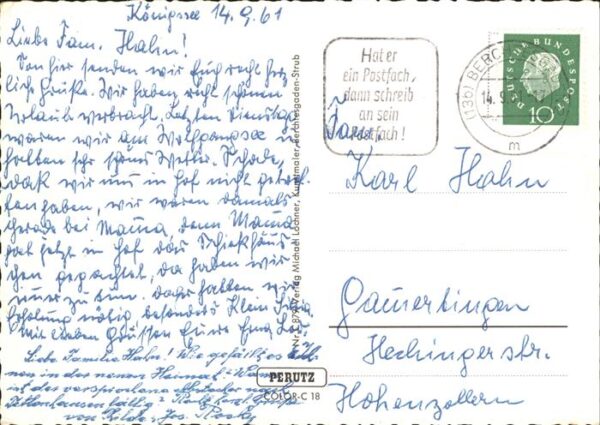 Königssee 14.9.61
Liebe Fam. Hahn!
Von hier senden wir Euch recht herz-
liche Grüße. Wir haben recht schönen
Urlaub verbracht. Letzten Dienstag
waren wir am Wolfgangsee u.
hatten sehr schönes Wetter. Schade,
daß wir uns in Hof nicht getrof-
fen haben, wir waren damals
gerade bei Mama, denn Mama
hat jetzt in Hof das Schießhäus-
chen gepachtet, da haben wir
zu tun. Daher hatten wir
Erholung nötig besonders Klein
Mit lieben Grüssen Eure
Liebe Familie Hahn! Wie gefällt es
nen in der neuen Heimat?
ist das versprochene
von
Hat er
ein Postfach,
dann schreib
an sein
Postfach!
(13b) BERCH
14.9.
m
DEUTSCHE BUNDESPOST
10
Fam.
Karl Hahn
Gamertingen
Hechingerstr.
Hohenzollern
Verlag Michael Lochner, Kunstmaler, Berchtesgaden-Strub
PERUTZ
COLOR-C 18